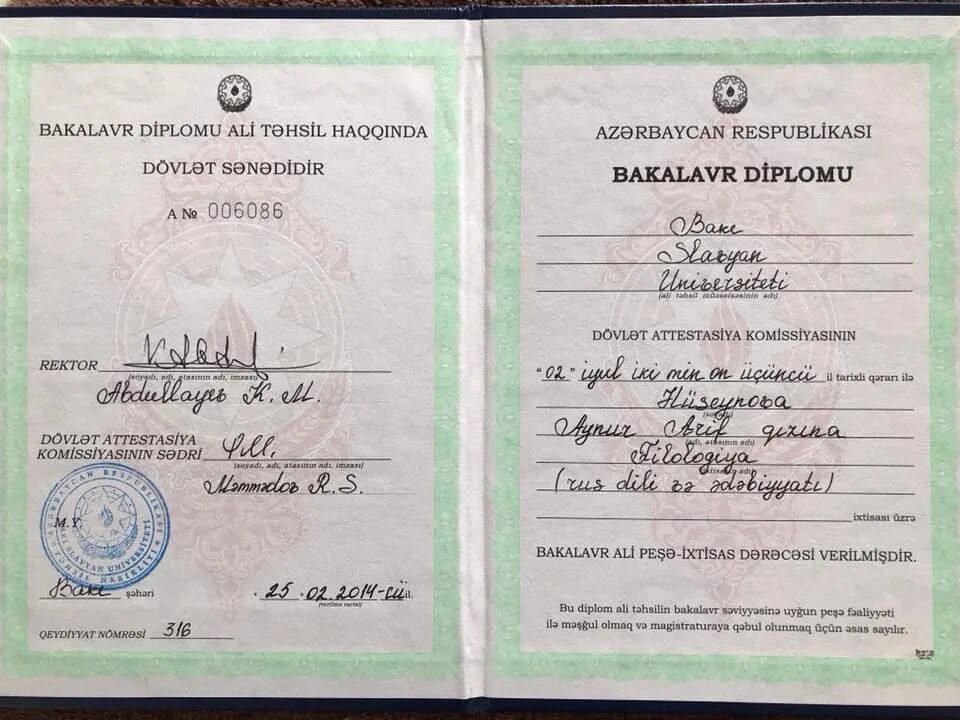 BAKALAVR DİPLOMU ALİ TƏHSİL HAQQINDA
DÖVLƏT SƏNƏDİDİR
A № 006086
REKTOR
(soyadı, adı, atasının adı, imzası)
Abdullayev K. M.
DÖVLƏT ATTESTASİYA
KOMİSSİYASININ SƏDRİ
(soyadı, adı, atasının adı, imzası)
Məmmədov R. S.
M.Y.
AZƏRBAYCAN RESPUBLİKASI
TƏHSİL NAZİRLİYİ
BAKI SLAVYAN UNİVERSİTETİ
Bakı şəhəri
" 25 " 02. 2014-cü il.
(verilmə tarixi)
QEYDİYYAT NÖMRƏSİ 316
AZƏRBAYCAN RESPUBLİKASI
BAKALAVR DİPLOMU
Bakı
Slavyan
Universiteti
(ali təhsil müəssisəsinin adı)
DÖVLƏT ATTESTASİYA KOMİSSİYASININ
"02" iyul iki min on üçüncü il tarixli qərarı ilə
Hüseynova
(soyadı)
Aynur Arif qızına
(adı, atasının adı)
Filologiya
(ixtisasın adı)
(rus dili və ədəbiyyatı)
ixtisası üzrə
BAKALAVR ALİ PEŞƏ-İXTİSAS DƏRƏCƏSİ VERİLMİŞDİR.
Bu diplom ali təhsilin bakalavr səviyyəsinə uyğun peşə fəaliyyəti
ilə məşğul olmaq və magistraturaya qəbul olunmaq üçün əsas sayılır.